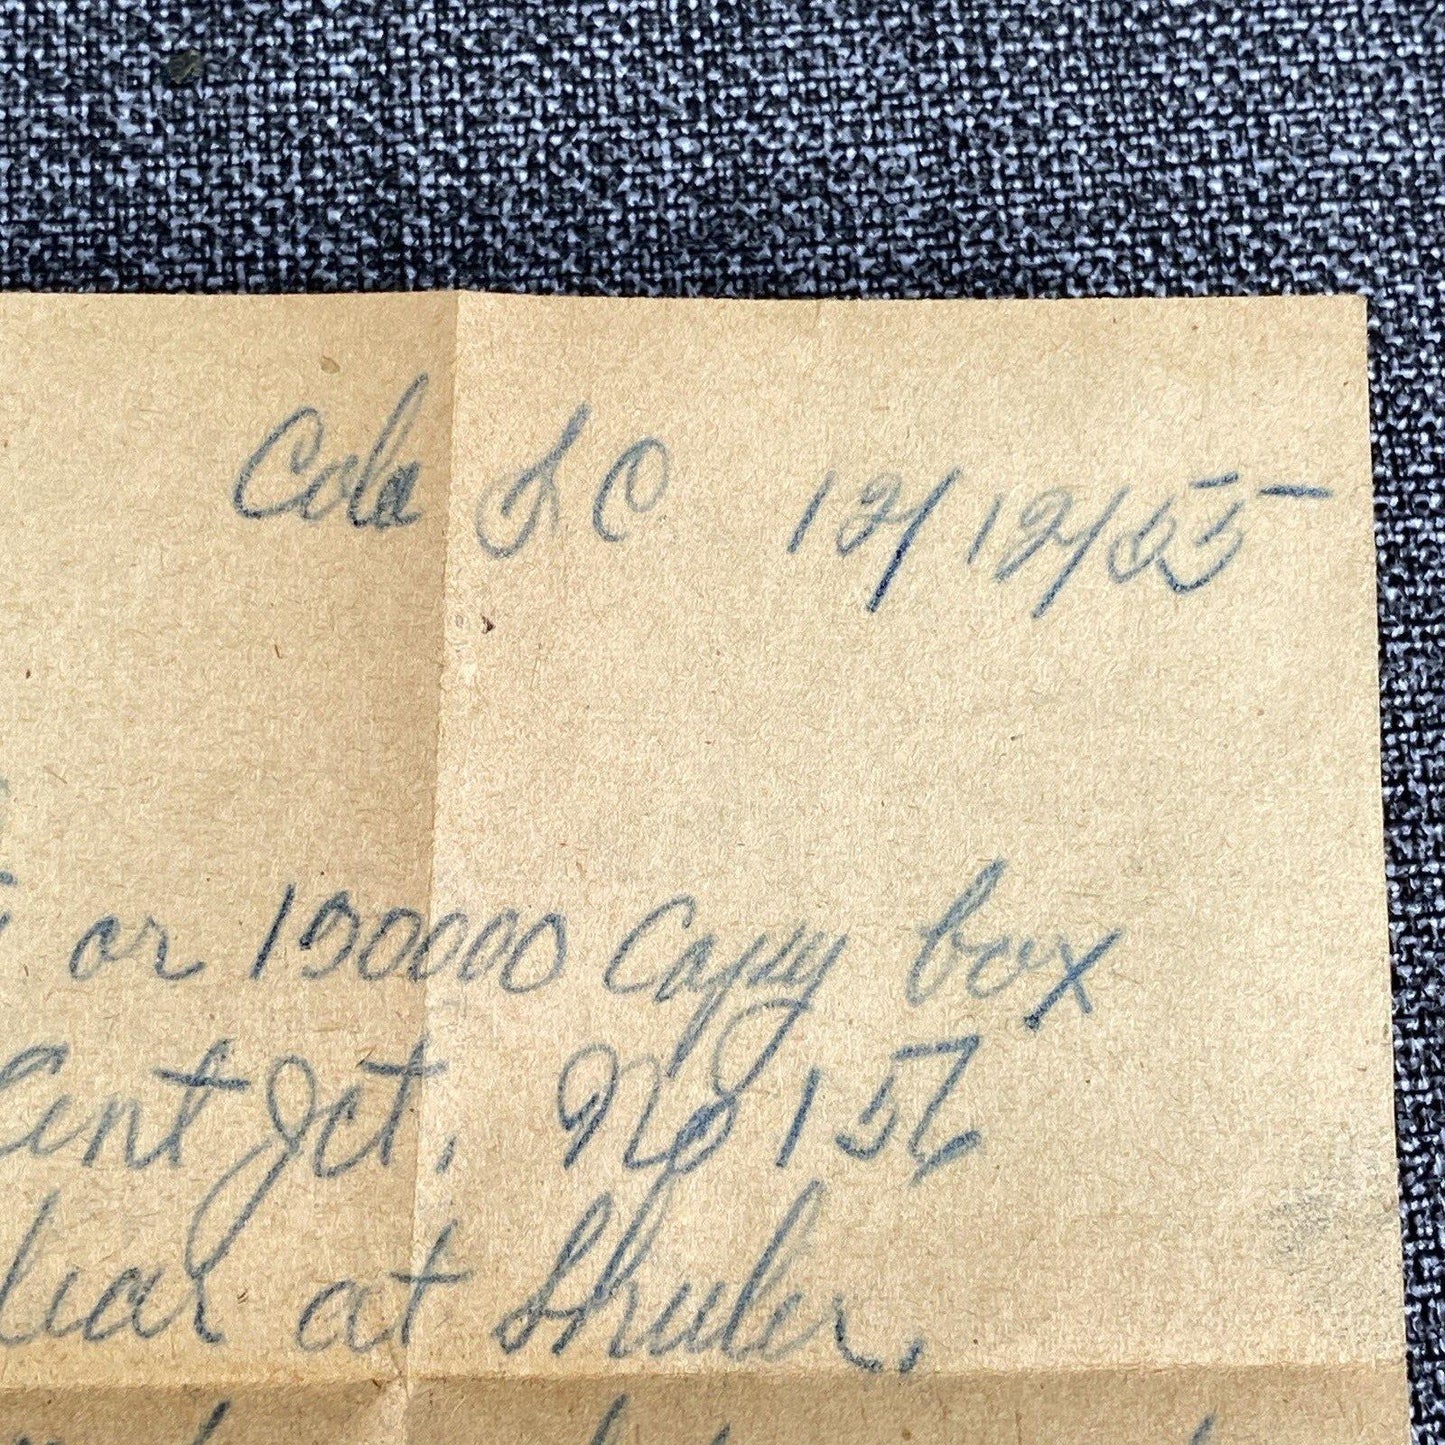 Cola S C 12/12/55
or 150000 Capy box
Cent Jct, No 156
liar at Shuler,